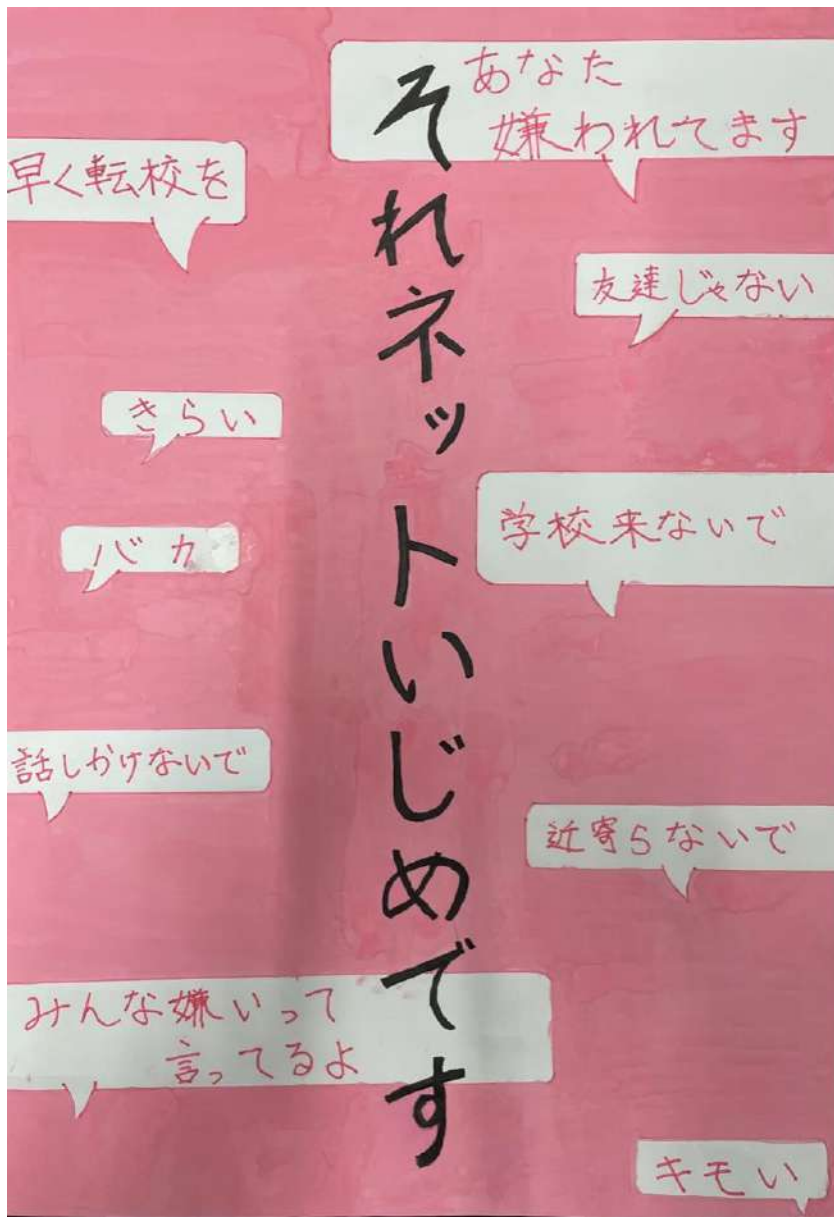 それネットいじめです
あなた
嫌われてます
早く転校を
友達じゃない
きらい
学校来ないで
バカ
話しかけないで
近寄らないで
みんな嫌いって
言ってるよ
キモい